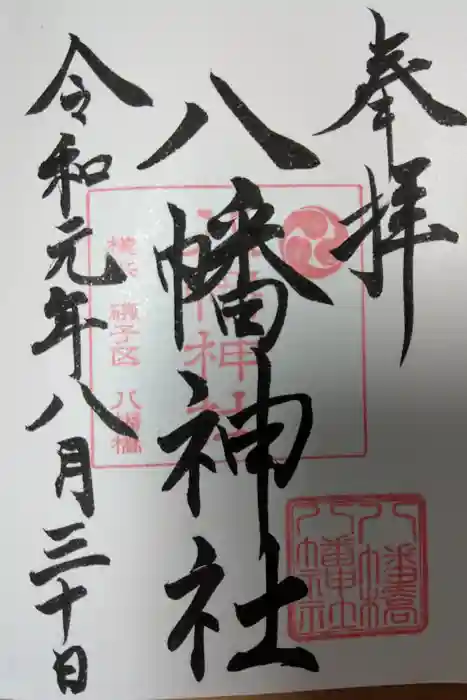 奉拝
八幡神社
令和元年八月三十日
八幡神社
横浜 磯子区 八幡橋
八幡橋
八幡神社